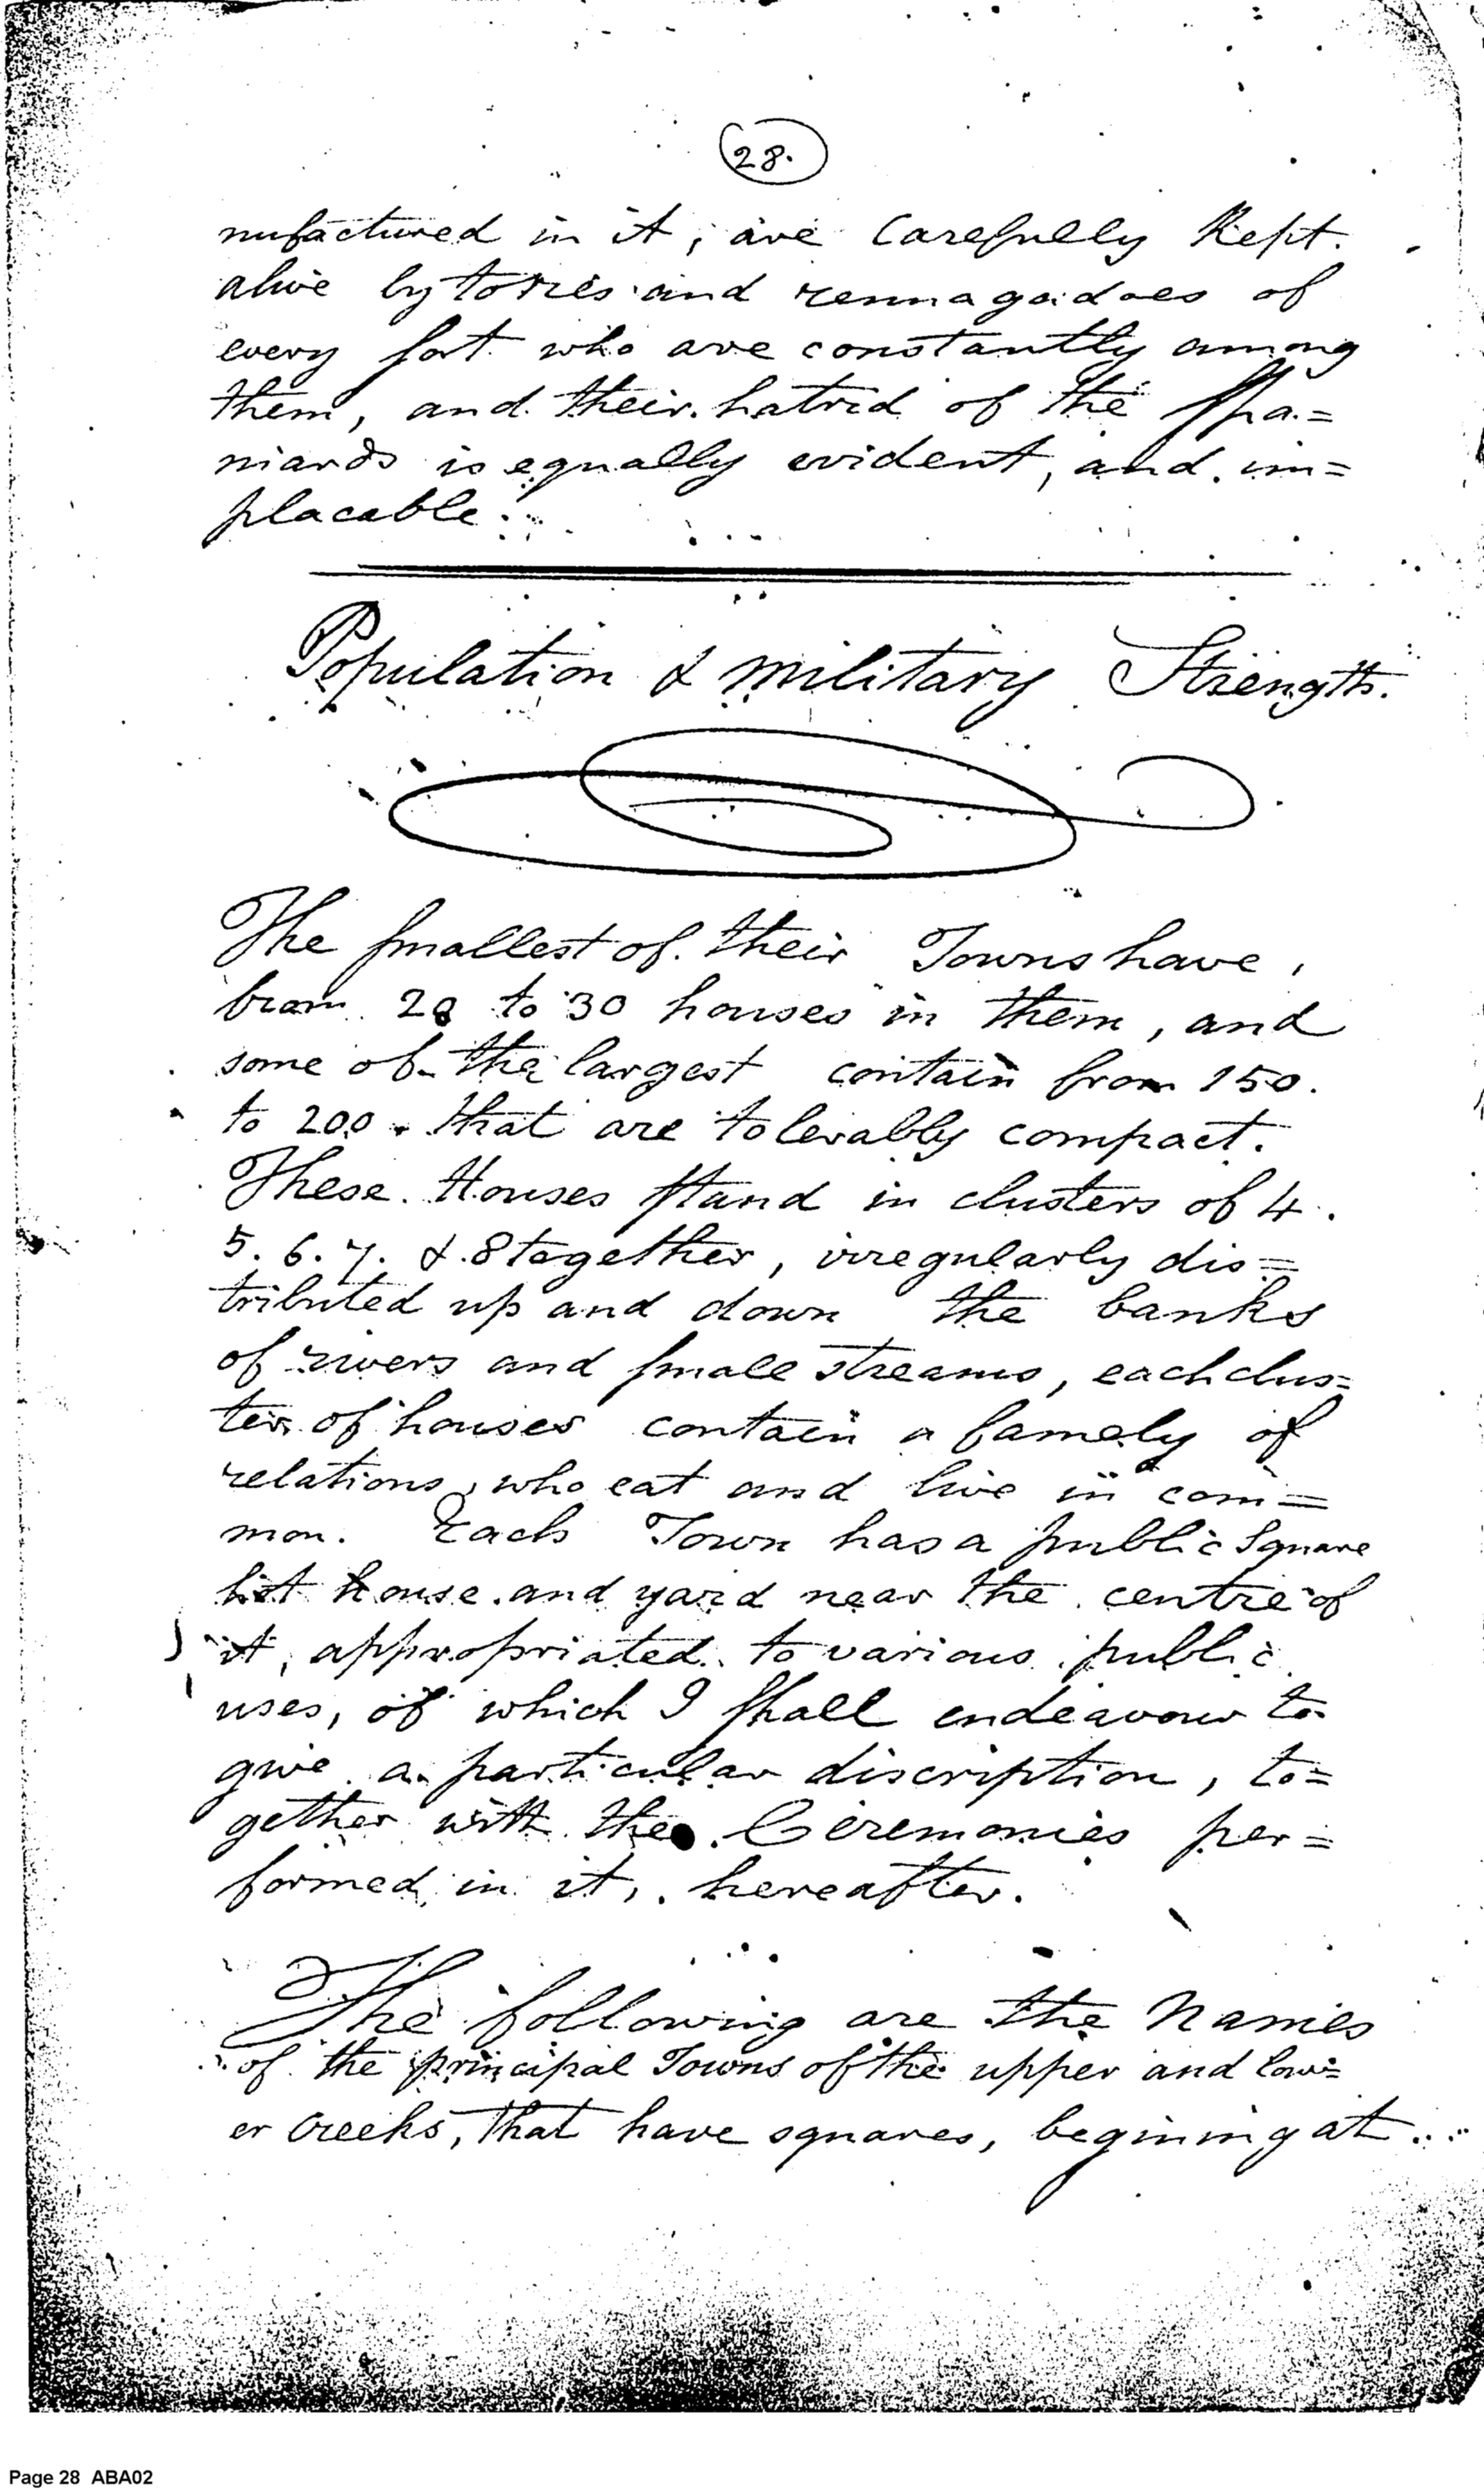 28.
nufactured in it, are Carefully Kept
alive by tories and rennagadoes of
every sort who are constantly among
them, and their hatrid of the Spa=
niards is equally evident, and im=
placable.
Population & military Strength.
The smallest of their Towns have,
from 20 to 30 houses in them, and
some of the largest contain from 150.
to 200. that are tolerably compact.
These Houses stand in clusters of 4.
5. 6. 7. & 8 together, irregularly dis=
tributed up and down the banks
of rivers and small streams, each clus=
ter of houses contain a famely of
relations, who eat and live in com=
mon. Each Town has a public Square
hot house and yard near the centre of
it, appropriated to various public
uses, of which I shall endeavour to
give a particular discription, to=
gether with the Ceremonies per=
formed in it, hereafter.
The following are the Names
of the principal Towns of the upper and low=
er Creeks, that have squares, begining at
Page 28 ABA02